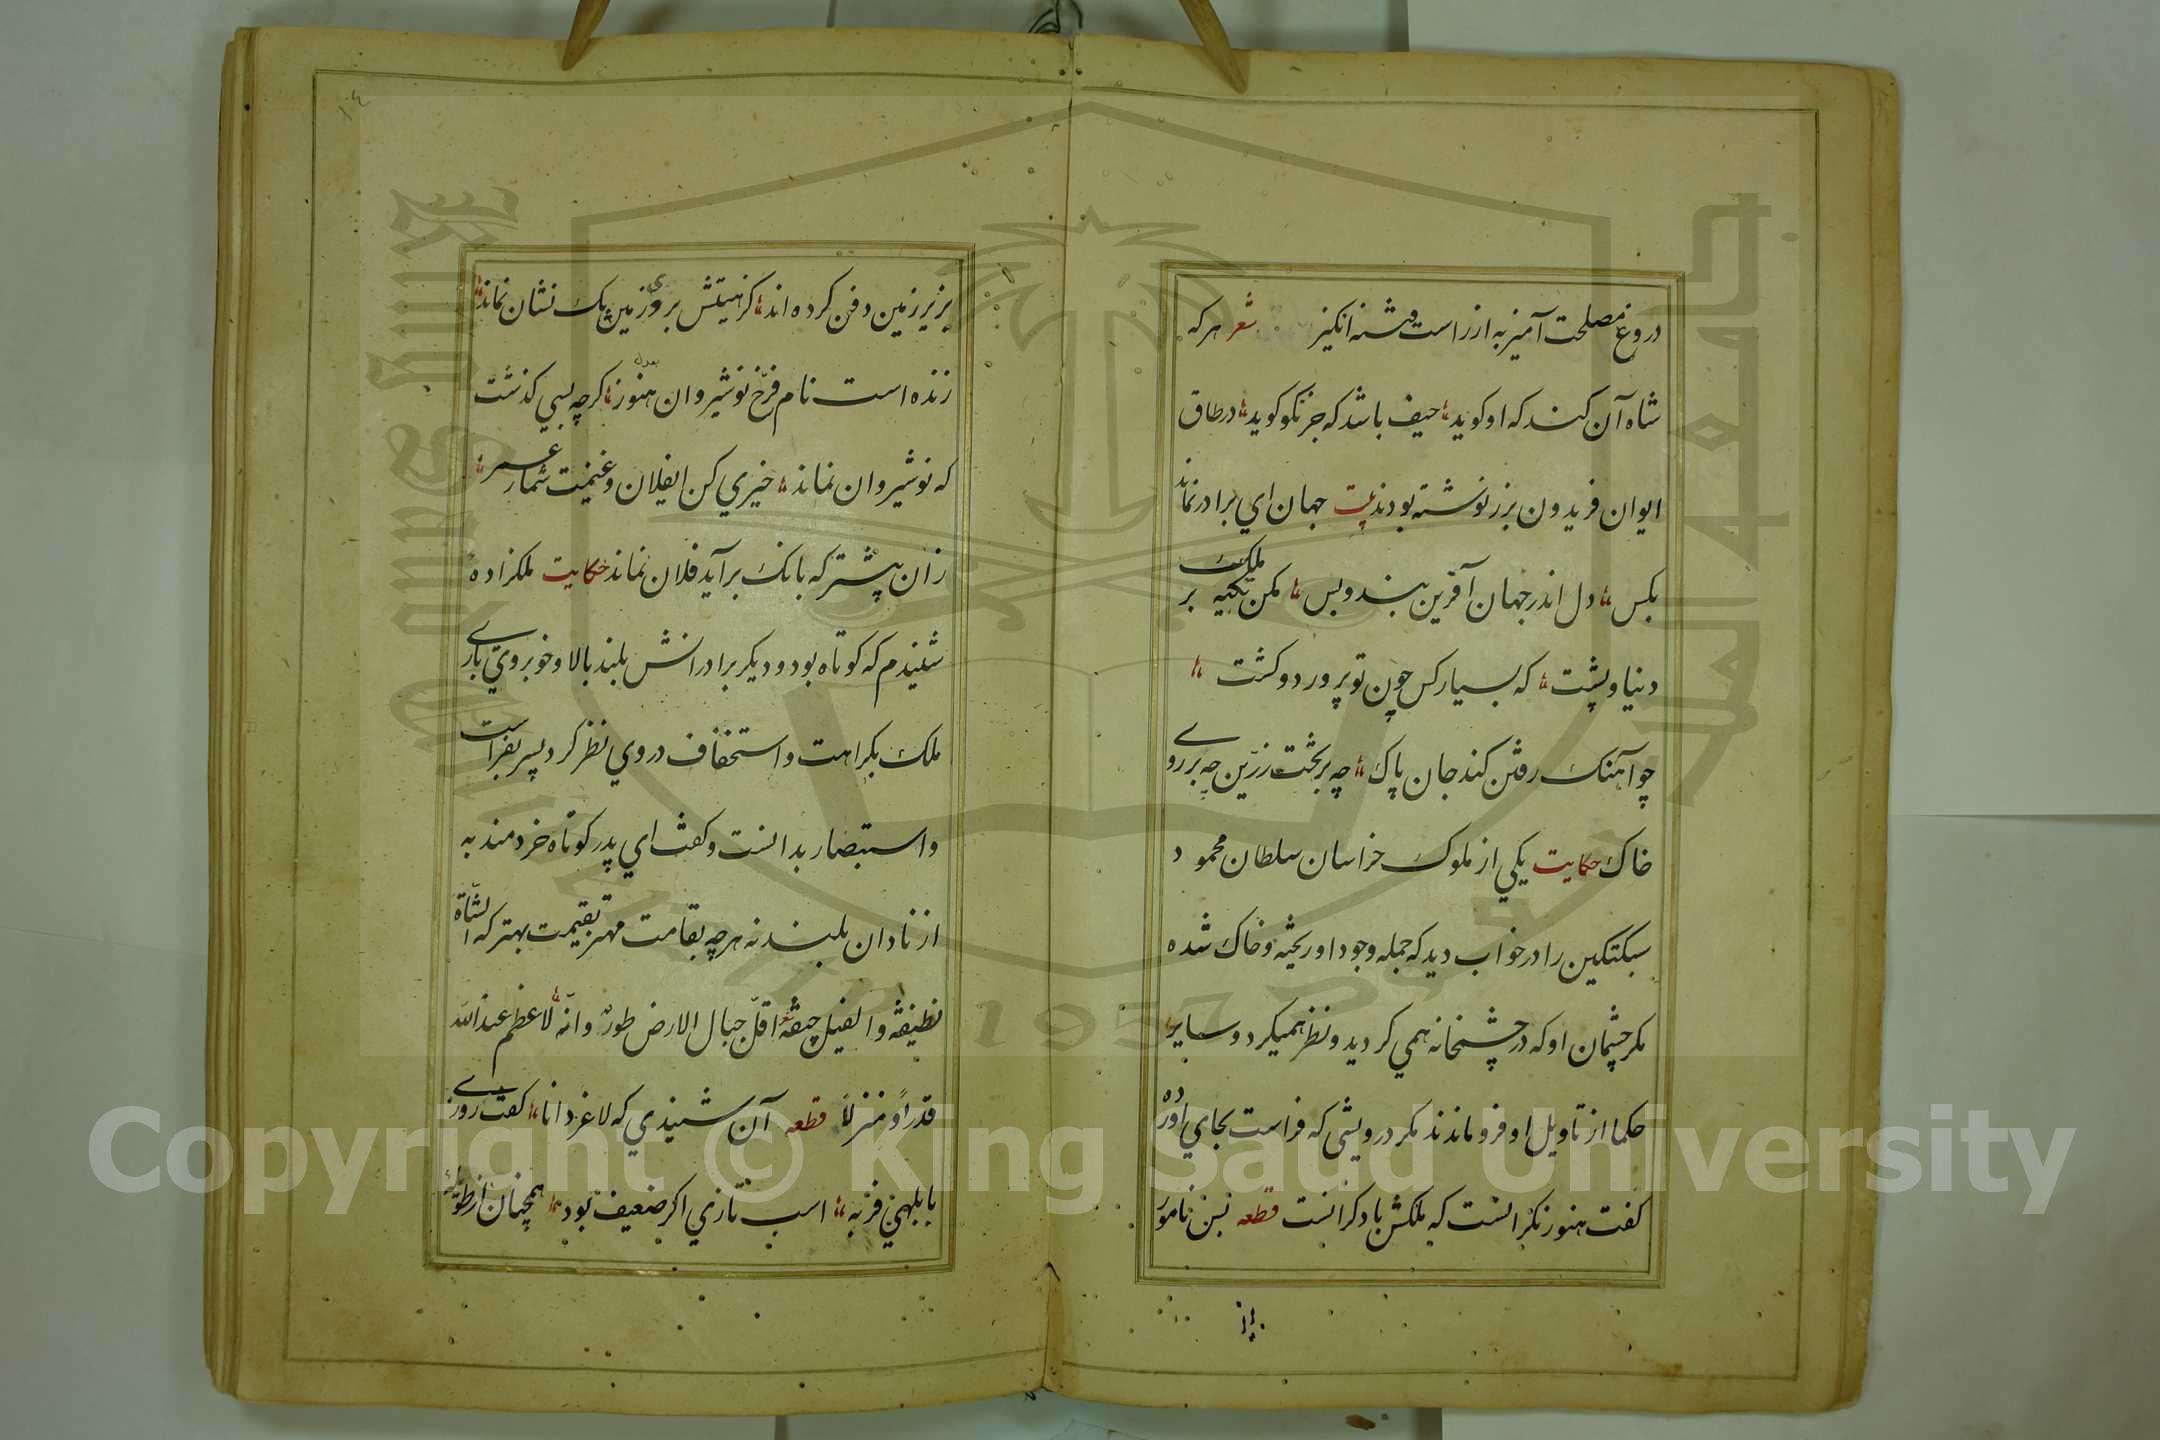 دروغ مصلحت آمیز به از راست فتنه انکیز شعر هر که
شاه آن کند که او کوید حیف باشد که جز نکو کوید در طاق
ایوان فریدون بزر نوشته بودند بیت جهان اي برادر نماند
بکس دل اندر جهان آفرین بند و بس مکن تکیه بر ملک
دنیا و پشت که بسیار کس چون تو پرورد و کشت
چو آهنک رفتن کند جان پاك چه بر تخت زرّین چه بر روے
خاك حکایت یکي از ملوك خراسان سلطان محمود
سبکتکین را در خواب دید که جمله وجود او ریخته و خاك شده
مکر چشمان او که در چشمخانه همي کردید و نظر همیکرد و سایر
حکما از تاویل او فرو ماندند مکر درویشي که فراست بجاي اورد
کفت هنوز نکرانست که ملکش با دکرانست قطعه بس نامور
بزیر زمین دفن کرده اند کز هستیش بروی زمین یك نشان نماند
زنده است نام فرّخ نوشیروان هنوز کرچه بسي کذشت
که نوشیروان نماند خیري کن ایفلان و غنیمت شمار عمر
زان پیشتر که بانك برآید فلان نماند حکایت ملکزاده
شنیدم که کوتاه بود و دیکر برادرانش بلند بالا و خوبروي بارے
ملك بکراهت و استحقاف در وي نظر کرد پسر بفراست
و استبصار بدانست و کفت اي پدر کوتاه خردمند به
از نادان بلند نه هر چه بقامت مهتر بقیمت بهتر که الشّاة
نظیفة و الفیل جیفة اقلّ جبال الارض طور وانّه لاعظم عند الله
قدراً و منزلاً قطعه آن شنیدي که لاغر دانا کفت روزے
با بلهي فربه اسب تازي اکر ضعیف بود همچنان از طویله
۱۰٤
Copyright © King Saud University
King Saud University
جامعة الملك سعود
1957